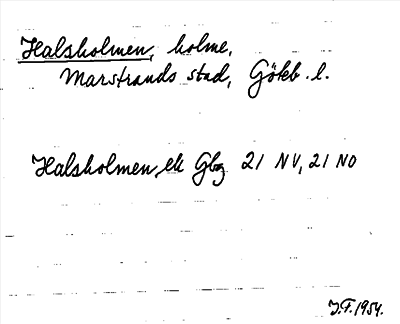 Halsholmen, holme,
Marstrands stad, Götb. l.
Halsholmen ek Gbg 21 NV, 21 NO
J.F. 1954.